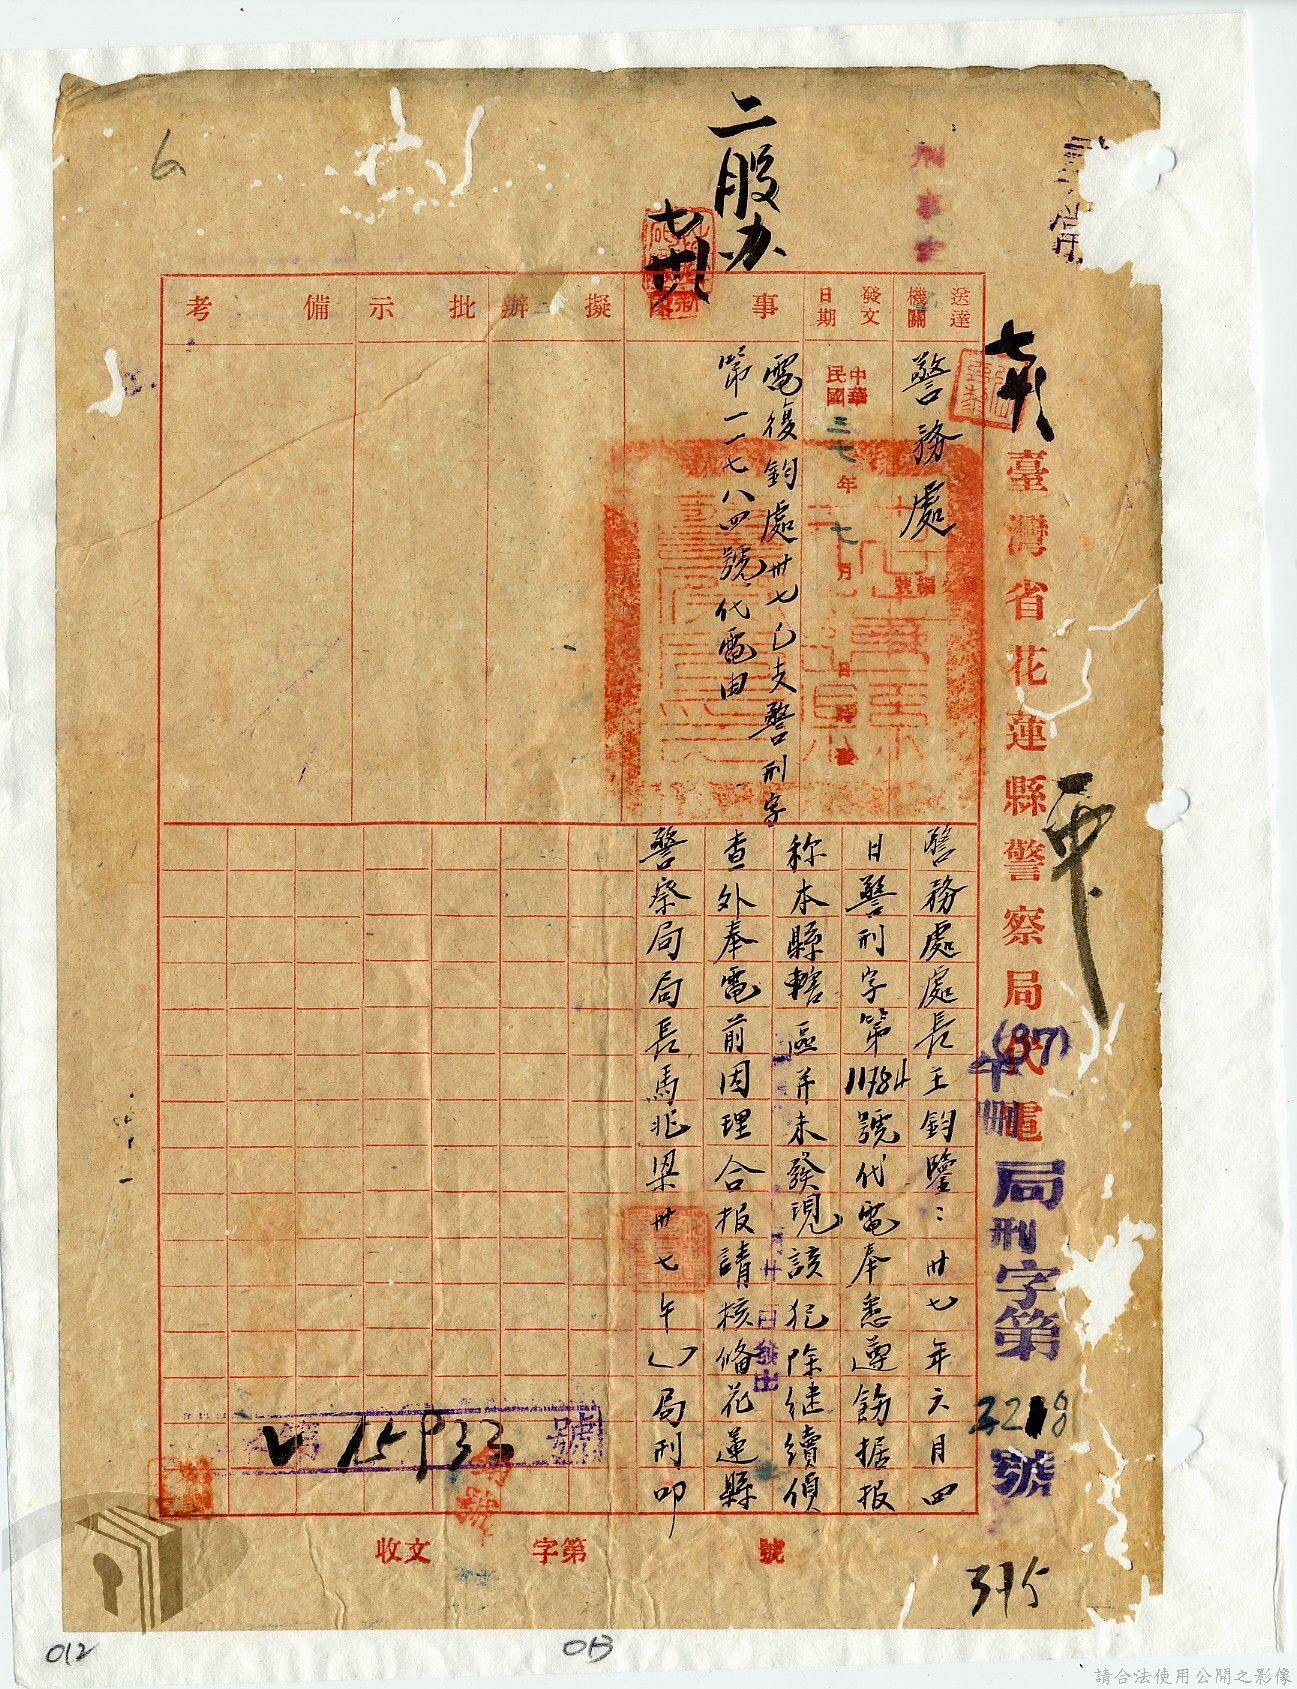 二股办
刑事室
臺灣省花蓮縣警察局代電
(37)
局刑字第
2218
號
送達機關
警務處
發文日期
中華民國三七年七月 日 時發
發文編號
事
電復鈞處卅七已支警刑字
第一一七八四號代電由
擬辦
批示
備考
警務處處長王鈞鑒:卅七年六月四
日警刑字第11784號代電奉悉遵飭据报
称本縣轄區并未發現該犯除继續偵
查外奉電前因理合报請核俻花蓮縣
警察局局長馬兆梁卅七午()局刑叩
日發出
第15933號
收文 字第 號
315
6
012
013
請合法使用公開之影像